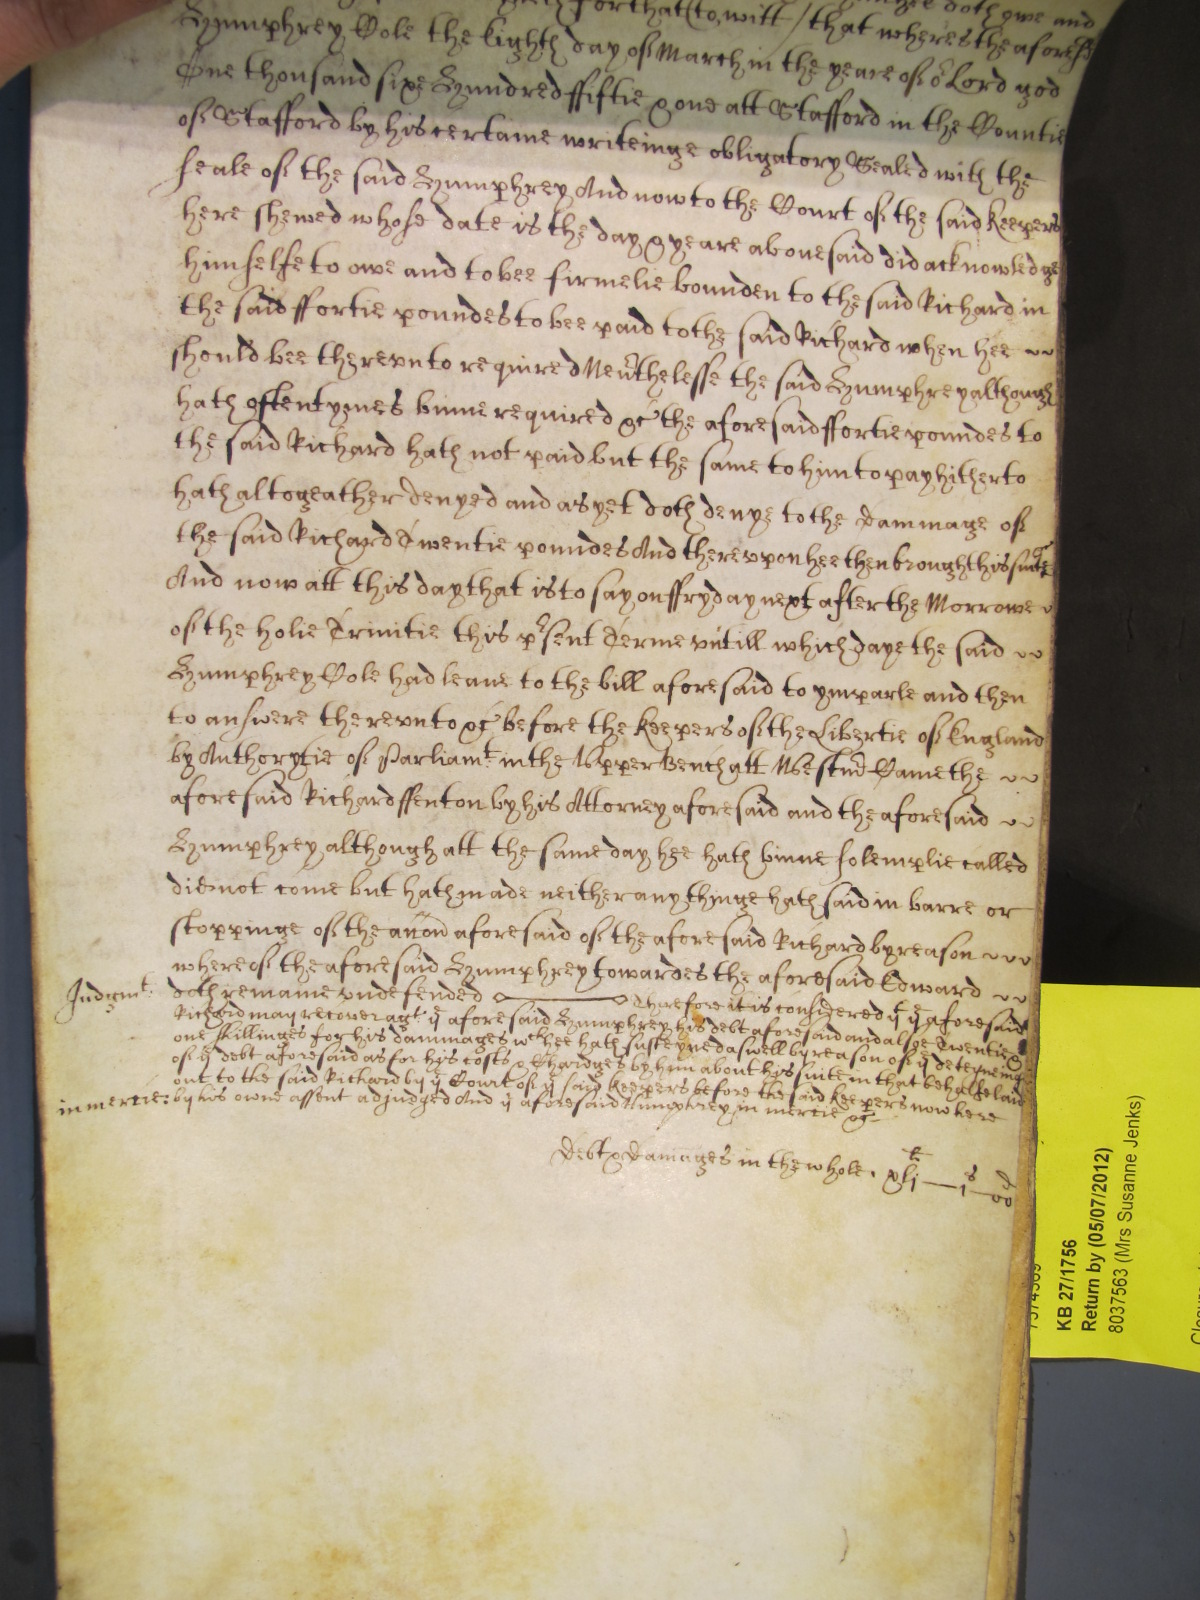 forthat (to witt / that wheres the aforesd
Humphrey Cole the Eighth day of March in the yeare of or Lord god
One thousand sixe Hundred ffiftie & one att Stafford in the Countie
of Stafford by his certaine writeinge obligatory Sealed with the
seale of the said Humphrey And now to the Court of the said keepers
here shewed whose date is the day & yeare abovesaid did acknowledge
himselfe to owe and to bee firmelie bounden to the said Richard in
the said ffortie poundes to bee paid to the said Richard when hee
should bee therevnto required Neu'thelesse the said Humphrey although
hath oftentymes binne required &c the aforesaid ffortie poundes to
the said Richard hath not paid but the same to him to pay hitherto
hath altogeather denyed and as yet doth denye to the Dammage of
the said Richard Twentie poundes And therevpon hee then brought his suite
And now att this day that is to say on ffryday next after the Morrowe
of the holie Trinitie this p'sent Terme vntill which daye the said
Humphrey Cole had leave to the bill aforesaid to ymparle and then
to answere therevnto &c before the Keepers of the Libertie of England
by Authorytie of Parliamt. in the Vpper Bench att Westm' Came the
aforesaid Richard ffenton by his Attorney aforesaid and the aforesaid
Humphrey although att the same day hee hath binne solemplie called
did not come but hath made neither any thinge hath said in barre or
stoppinge of the accon aforesaid of the aforesaid Richard by reason
whereof the aforesaid Humphrey towardes the aforesaid Edward
Judgmt. doth remaine vndefended Therefore it is considered yt ye aforesaid
Richard may recover agt. ye aforesaid Humphrey his debt aforesaid and alsoe Twentie &
one shillinges for his dammages wch hee hath susteyned aswell by reason of ye deteyneing
of ye debt aforesaid as for his costs & Chardges by him about his suite in that behalfe laid
out to the said Richard by ye Court of ye said Keepers before the said Keepers now here
in mercie: by his owne assent adjudged And ye aforesaid Humphrey in mercie &c
Debt & Damages in the whole. xlj li j s 00 d
KB 27/1756
Return by (05/07/2012)
8037563 (Mrs Susanne Jenks)